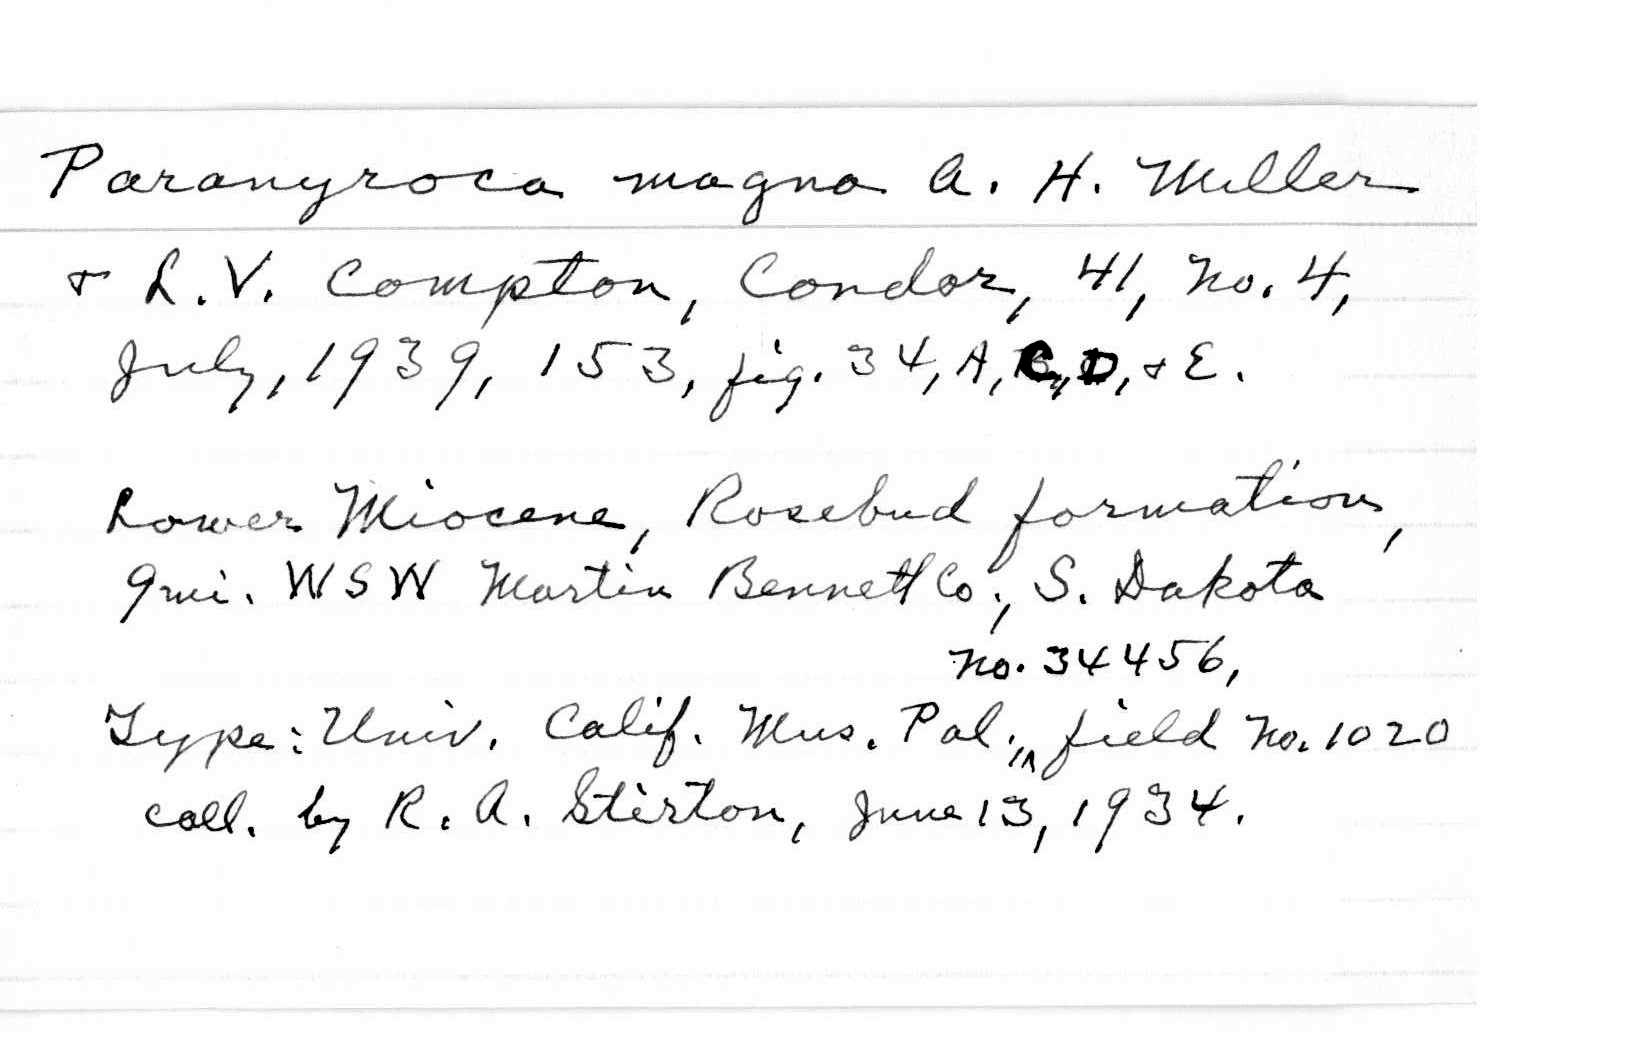 Paranyroca magna A. H. Miller
& L. V. Compton, Condor, 41, No. 4,
July, 1939, 153, fig. 34, A, C, D, & E.
Lower Miocene, Rosebud formation,
9 mi. WSW Martin Bennett Co., S. Dakota
No. 34456,
Type: Univ. Calif. Mus. Pal., ^ field No. 1020
coll. by R. A. Stirton, June 13, 1934.